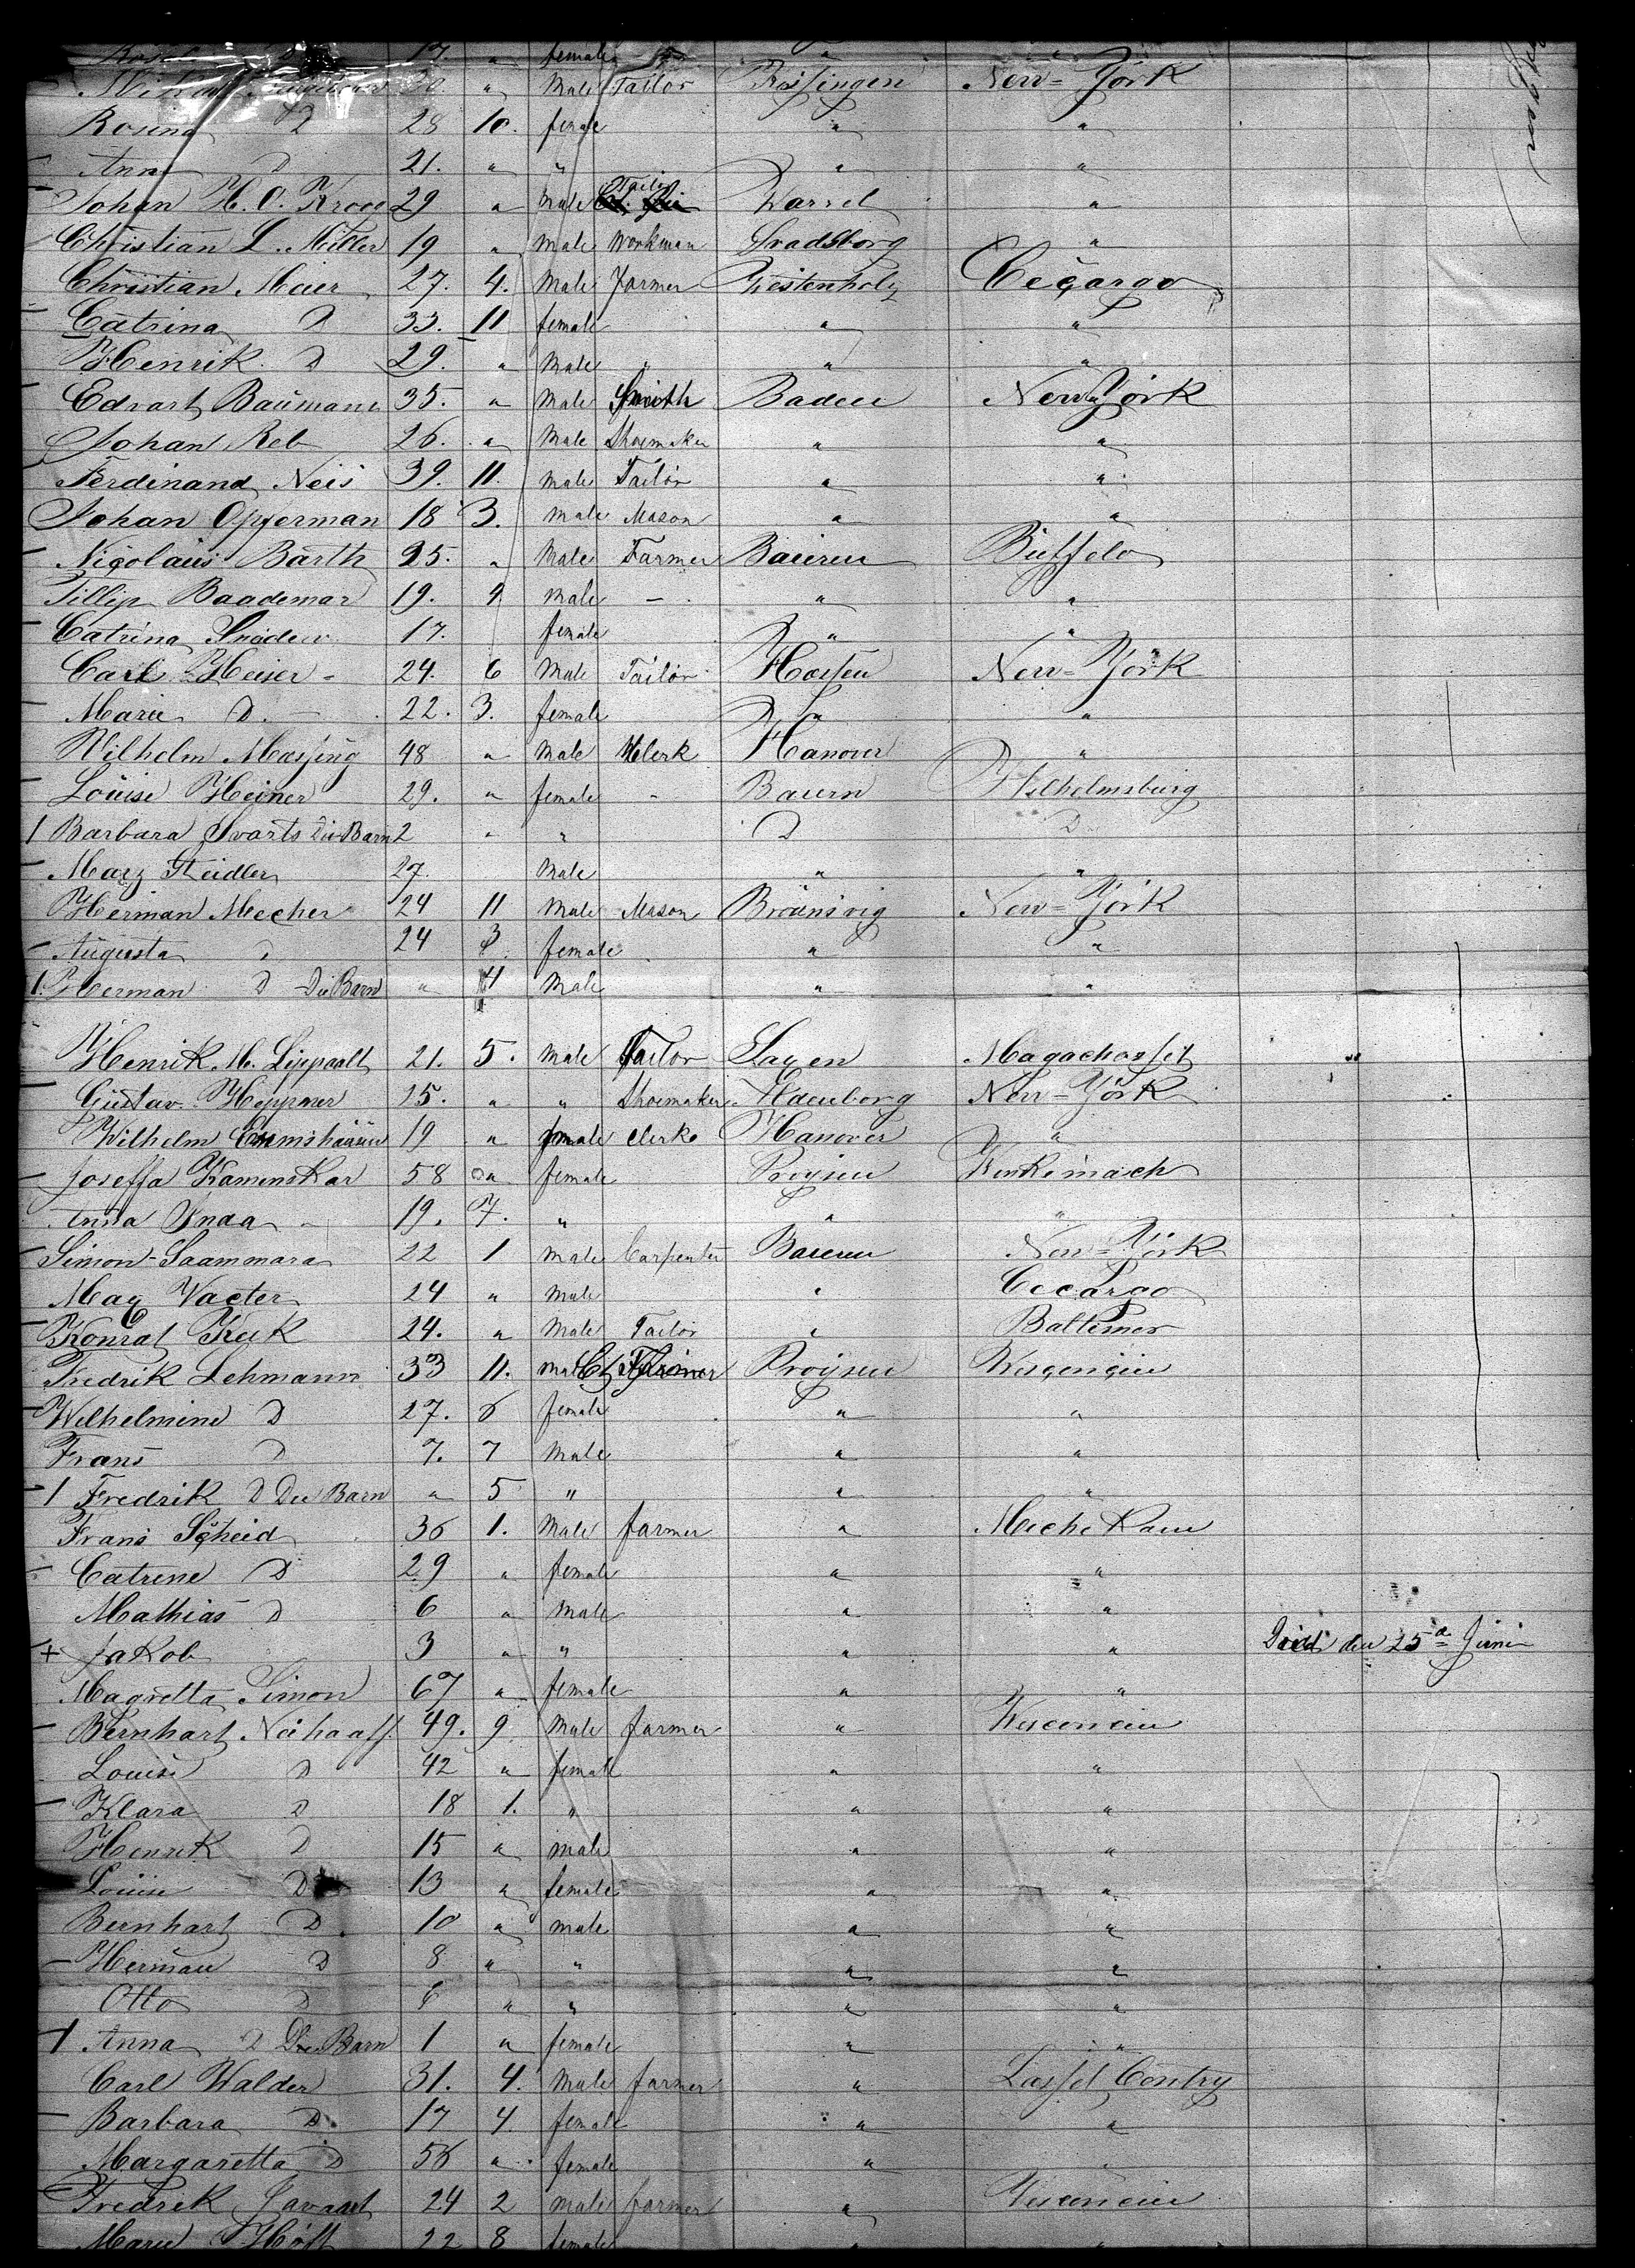 17. " female " "
Male Tailor New-York
Rosina D 28 10. female " "
Anna D 21. " " " "
Johan H. O. Kroog 29 " Male Tailor Warrel "
Christian L. Miller 19 " Male Workman Sradsborg "
Christian Meier 27. 4. Male Farmer Westenholz Ceçargo
Catrina D 33. 11 female " "
Henrik D 29. " Male " " "
Edvart Baümann 35. " Male Smith Baden New York
Johan Reb 26. " Male Shoemaker " "
Ferdinand Neis 39. 11. Male Tailor " "
Johan Opperman 18 3. Male Mason " "
Niçolaüs Barth 25. " Male Farmer Baieren Büffelo
Fillip Baademar 19. 9 Male - " "
Catrina 17. female " "
Carl Heiser 24. 6 Male Tailor Hassen New-York
Marie D. 22. 3. female " "
Wilhelm Massing 48 " Male Clerk Hanover "
Loüise Heiner 29. " female - Baiern Wilhelmsburg
1 Barbara Svarts Die Barn 2 " " D D
Marz Steidler 27. Male " "
Herman Mecher 24 11 Male Mason Braünsvig New-York
Augusta D 24 3 female " "
1. Herman D Die Barn " 4 Male " "
Henrik M. Lippaalt 21. 5. Male Tailor Saxen Magachosset
Güstav Heppner 15. " " Shoemaker Oldenborg New-York
Wilhelm 19 " male Clerk Hanover "
Joseffa Kamenskar 58 " female Proÿsen
Anna 19. 7. " " "
Simon Saammara 22 1 Male Carpenter Baieren New-York
Max Vacter 24 " Male " Cecargo
Konrat Keik 24. " Male Tailor " Baltimor
Fredrik Lehmann 33 11. Male Farmer Proÿsen Wesgensien
Wilhelmine D 27. 6 female " "
Frans D 7. 7 Male " "
1 Fredrik D Die Barn " 5 " " "
Frans Scheid 36 1. Male farmer " Meche Kaen
Catrine D 29 " female " "
Mathias D 6 " Male " "
+ Jakob 3 " " " " Died den 25de Juni
Magretta Simon 67 " female " "
Bernhart Neihaaff. 49. 9 Male farmer " Wesconcien
Louise D 42 " female " "
Klara D 18 1. " " "
Henrik D 15 " male " "
Loüise D 13 " female " "
Bernhart D. 10 " male " "
Herman D 8 " " " "
Otto D 6 " " " "
1 Anna D Die Barn 1 " female " "
Carl Walder 31. 4. Male farmer " Lassel Contry
Barbara D. 17 4. female " "
Margaretta D 56 " female "
Fredrik Javaart 24 2 male farmer " Wesconcien
Marie Höft 22 8 female " "